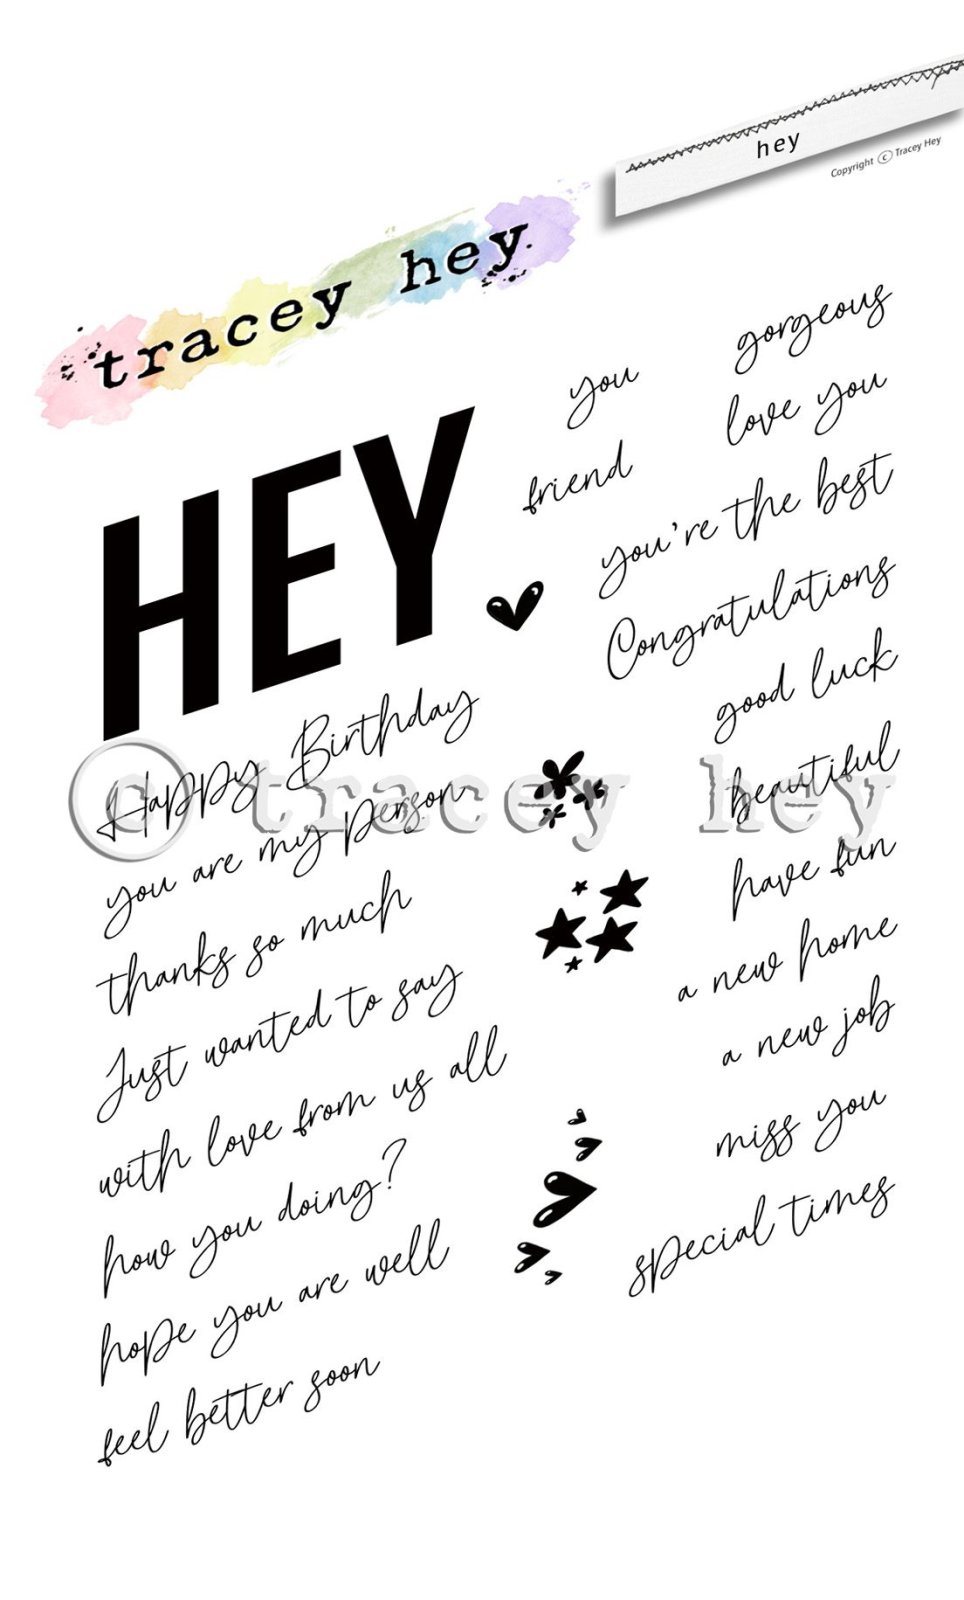 hey
Copyright © Tracey Hey
tracey hey
HEY
you
gorgeous
friend
love you
you're the best
Congratulations
good luck
beautiful
have fun
a new home
a new job
miss you
special times
Happy Birthday
you are my person
thanks so much
Just wanted to say
with love from us all
how you doing?
hope you are well
feel better soon
© tracey hey